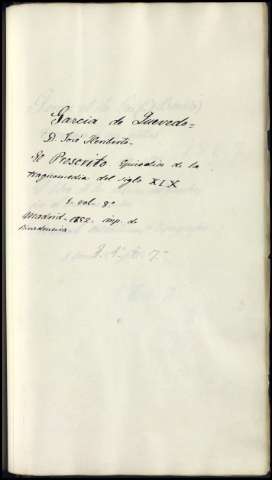 Garcia de Quevedo =
D. José Heriberto =
El Proscrito Episodio de la
tragicomedia del siglo XIX
1. vol. 8º
Madrid - 1852. imp. de